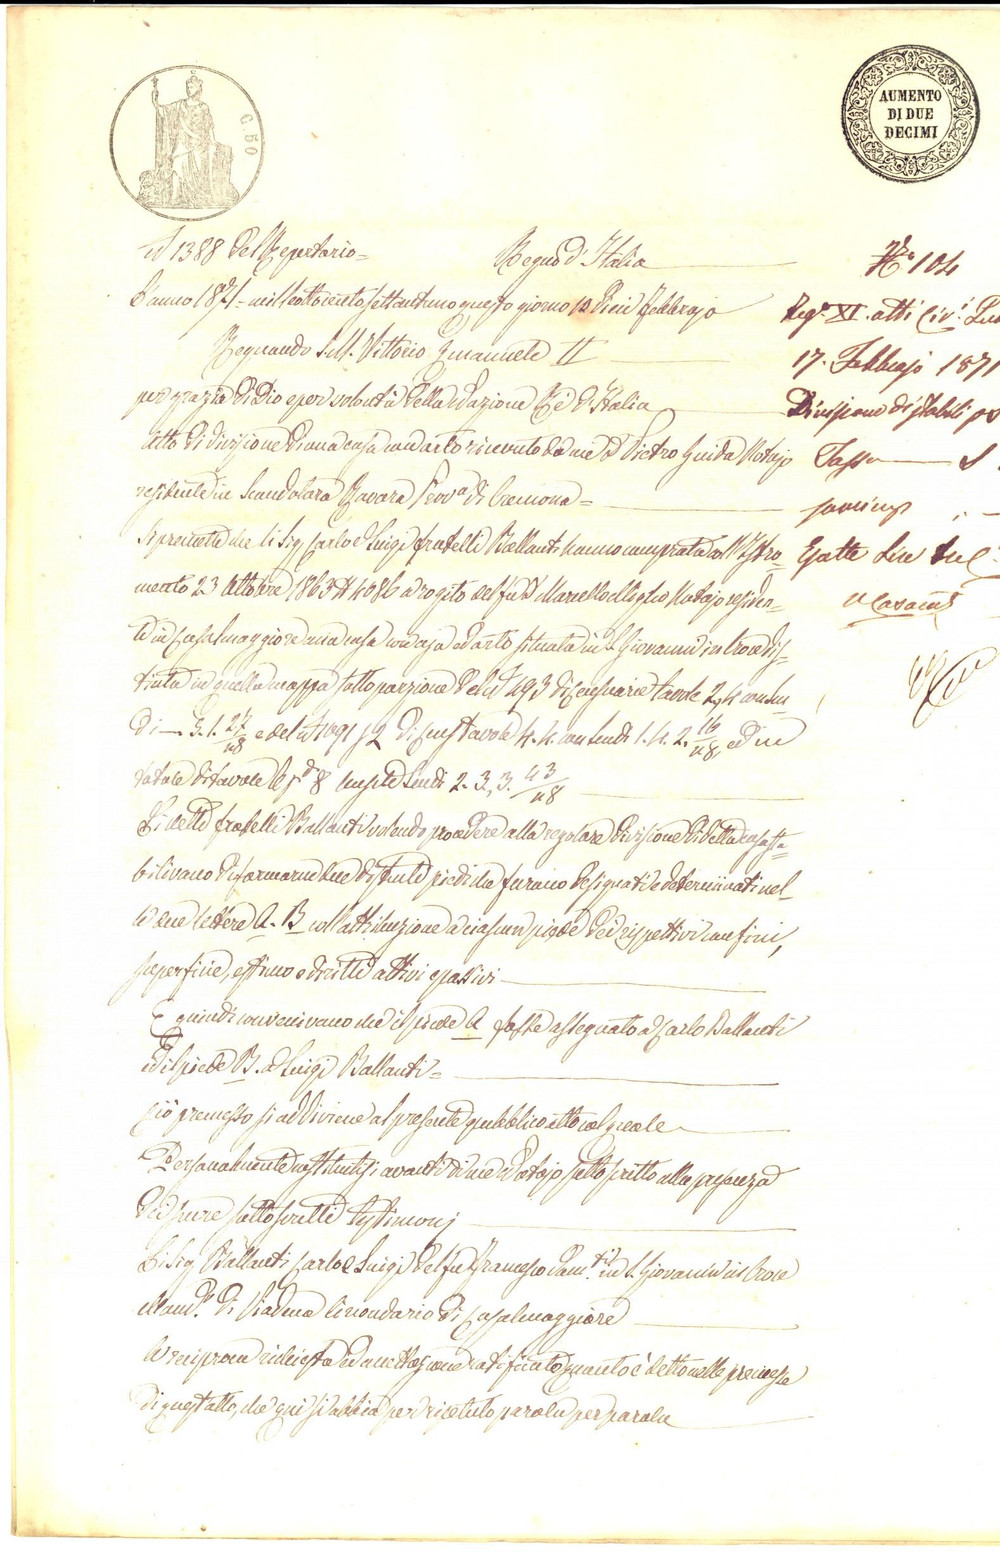 C. 50
AUMENTO
DI DUE
DECIMI
N 1388 del Repertorio=
Regno d'Italia
L'anno 1871= mille ottocento settantuno questo giorno 10 Dieci Febbrajo
Regnando S. M. Vittorio Emanuele II
per grazia di Dio e per volontà della Nazione Rè d'Italia
Atto di divisione di una casa con orto ricevuto da me D Pietro Guida Notajo
residente in Scandolara Ravara Prov.a di Cremona=
Si premette che li Sig Carlo e Luigi fratelli Ballanti hanno comprata coll'Istro=
mento 23 Ottobre 1863 N 4086 a rogito del fu D Marcello Notajo residen=
te in Casalmaggiore una casa con aja ed orto situata in S. Giovanni in Croce dis=
tinta in quella mappa sotto porzione del N 493 di censuarie tavole 2, 4 con scu=
di 3. 1. 27/48 e del N 1091 1/2 di cens. tavole 4. 4. con scudi 1. 4. 2 16/48, ed in
totale di tavole 8 censite scudi 2. 3, 3. 43/48
Li detti fratelli Ballanti volendo procedere alla regolare divisione di detta casa sta=
bilivano di formarne due distinte piedi che furono designati e determinati nel=
le due lettere A. B coll'attribuzione a ciascun piede dei rispettivi confini,
superficie, estimo e diritti attivi e passivi
E quindi convenivano che il piede A fosse assegnato a Carlo Ballanti
ed il piede B. a Luigi Ballanti=
Ciò premesso si addiviene al presente pubblico atto col quale
Personalmente costituitisi avanti di me Notajo sottoscritto alla presenza
dei pure sottoscritti testimonj
Li Sig Ballanti Carlo e Luigi del fu Francesco dom.ti in S. Giovanni in Croce
Mand.o di Viadana Circondario di Casalmaggiore
A reciproca richiesta ed accettazione ratificato quanto è detto nelle premesse
di quest'atto, che qui si abbia per ripetuto parola per parola
N.o 104
Reg.o XI. atti Civ.i
17. Febbrajo 1871
Divisione di stabili
Tassa
Esatte Lire